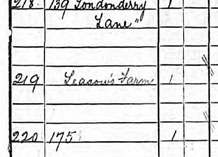 218 139 Londonderry 1
Lane"
219 Farm 1
220 175 1